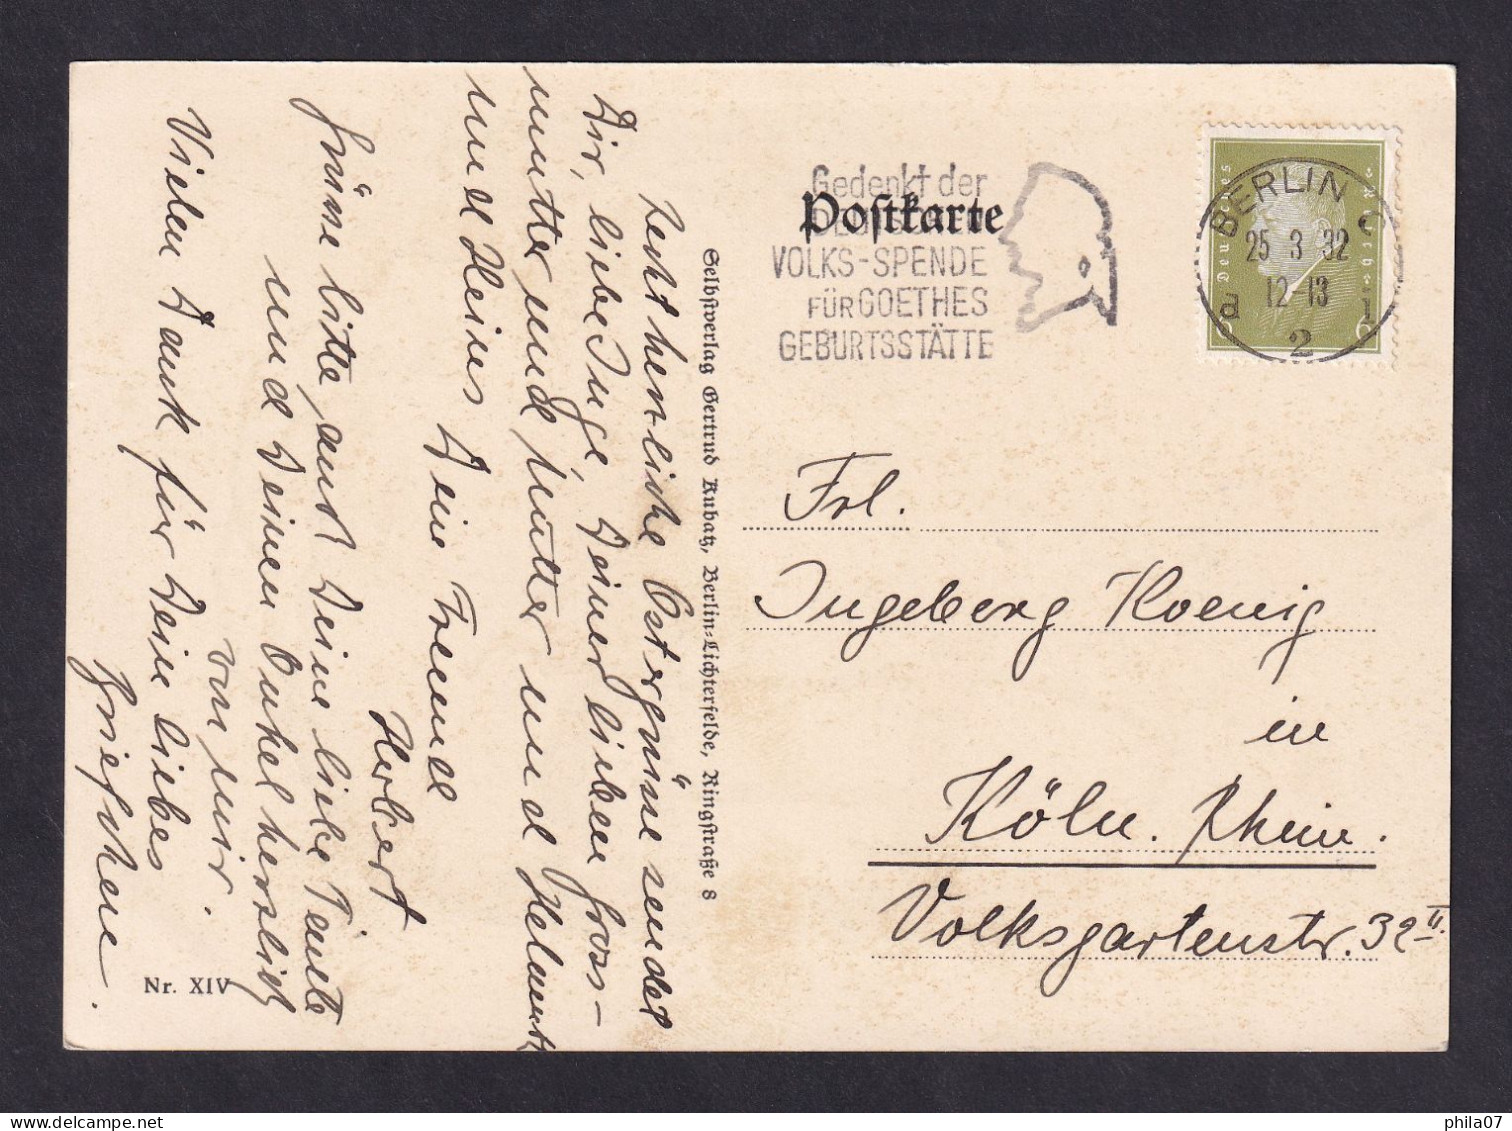 Recht herzliche Ostergrüsse sendet
Dir, liebe Inge, Deiner lieben Gross-
mutter und Mutter und Helmuth
und Heins Dein Freund
Herbert
Grüsse bitte auch Deine liebe Tante
und Deinen Onkel herzlich
von mir.
Vielen Dank für Dein liebes
Briefchen.
Nr. XIV
Selbstverlag Gertrud Kubatz, Berlin-Lichterfelde, Ringstraße 8
Postkarte
Gedenkt der
DEUTSCHEN
VOLKS-SPENDE
FÜR GOETHES
GEBURTSSTÄTTE
BERLIN C
25 3 32
12-13
d 2 1
Deutsches Reich
6
Frl.
Ingeborg Koenig
in
Köln. Rhein.
Volksgartenstr. 32 II.
phila07